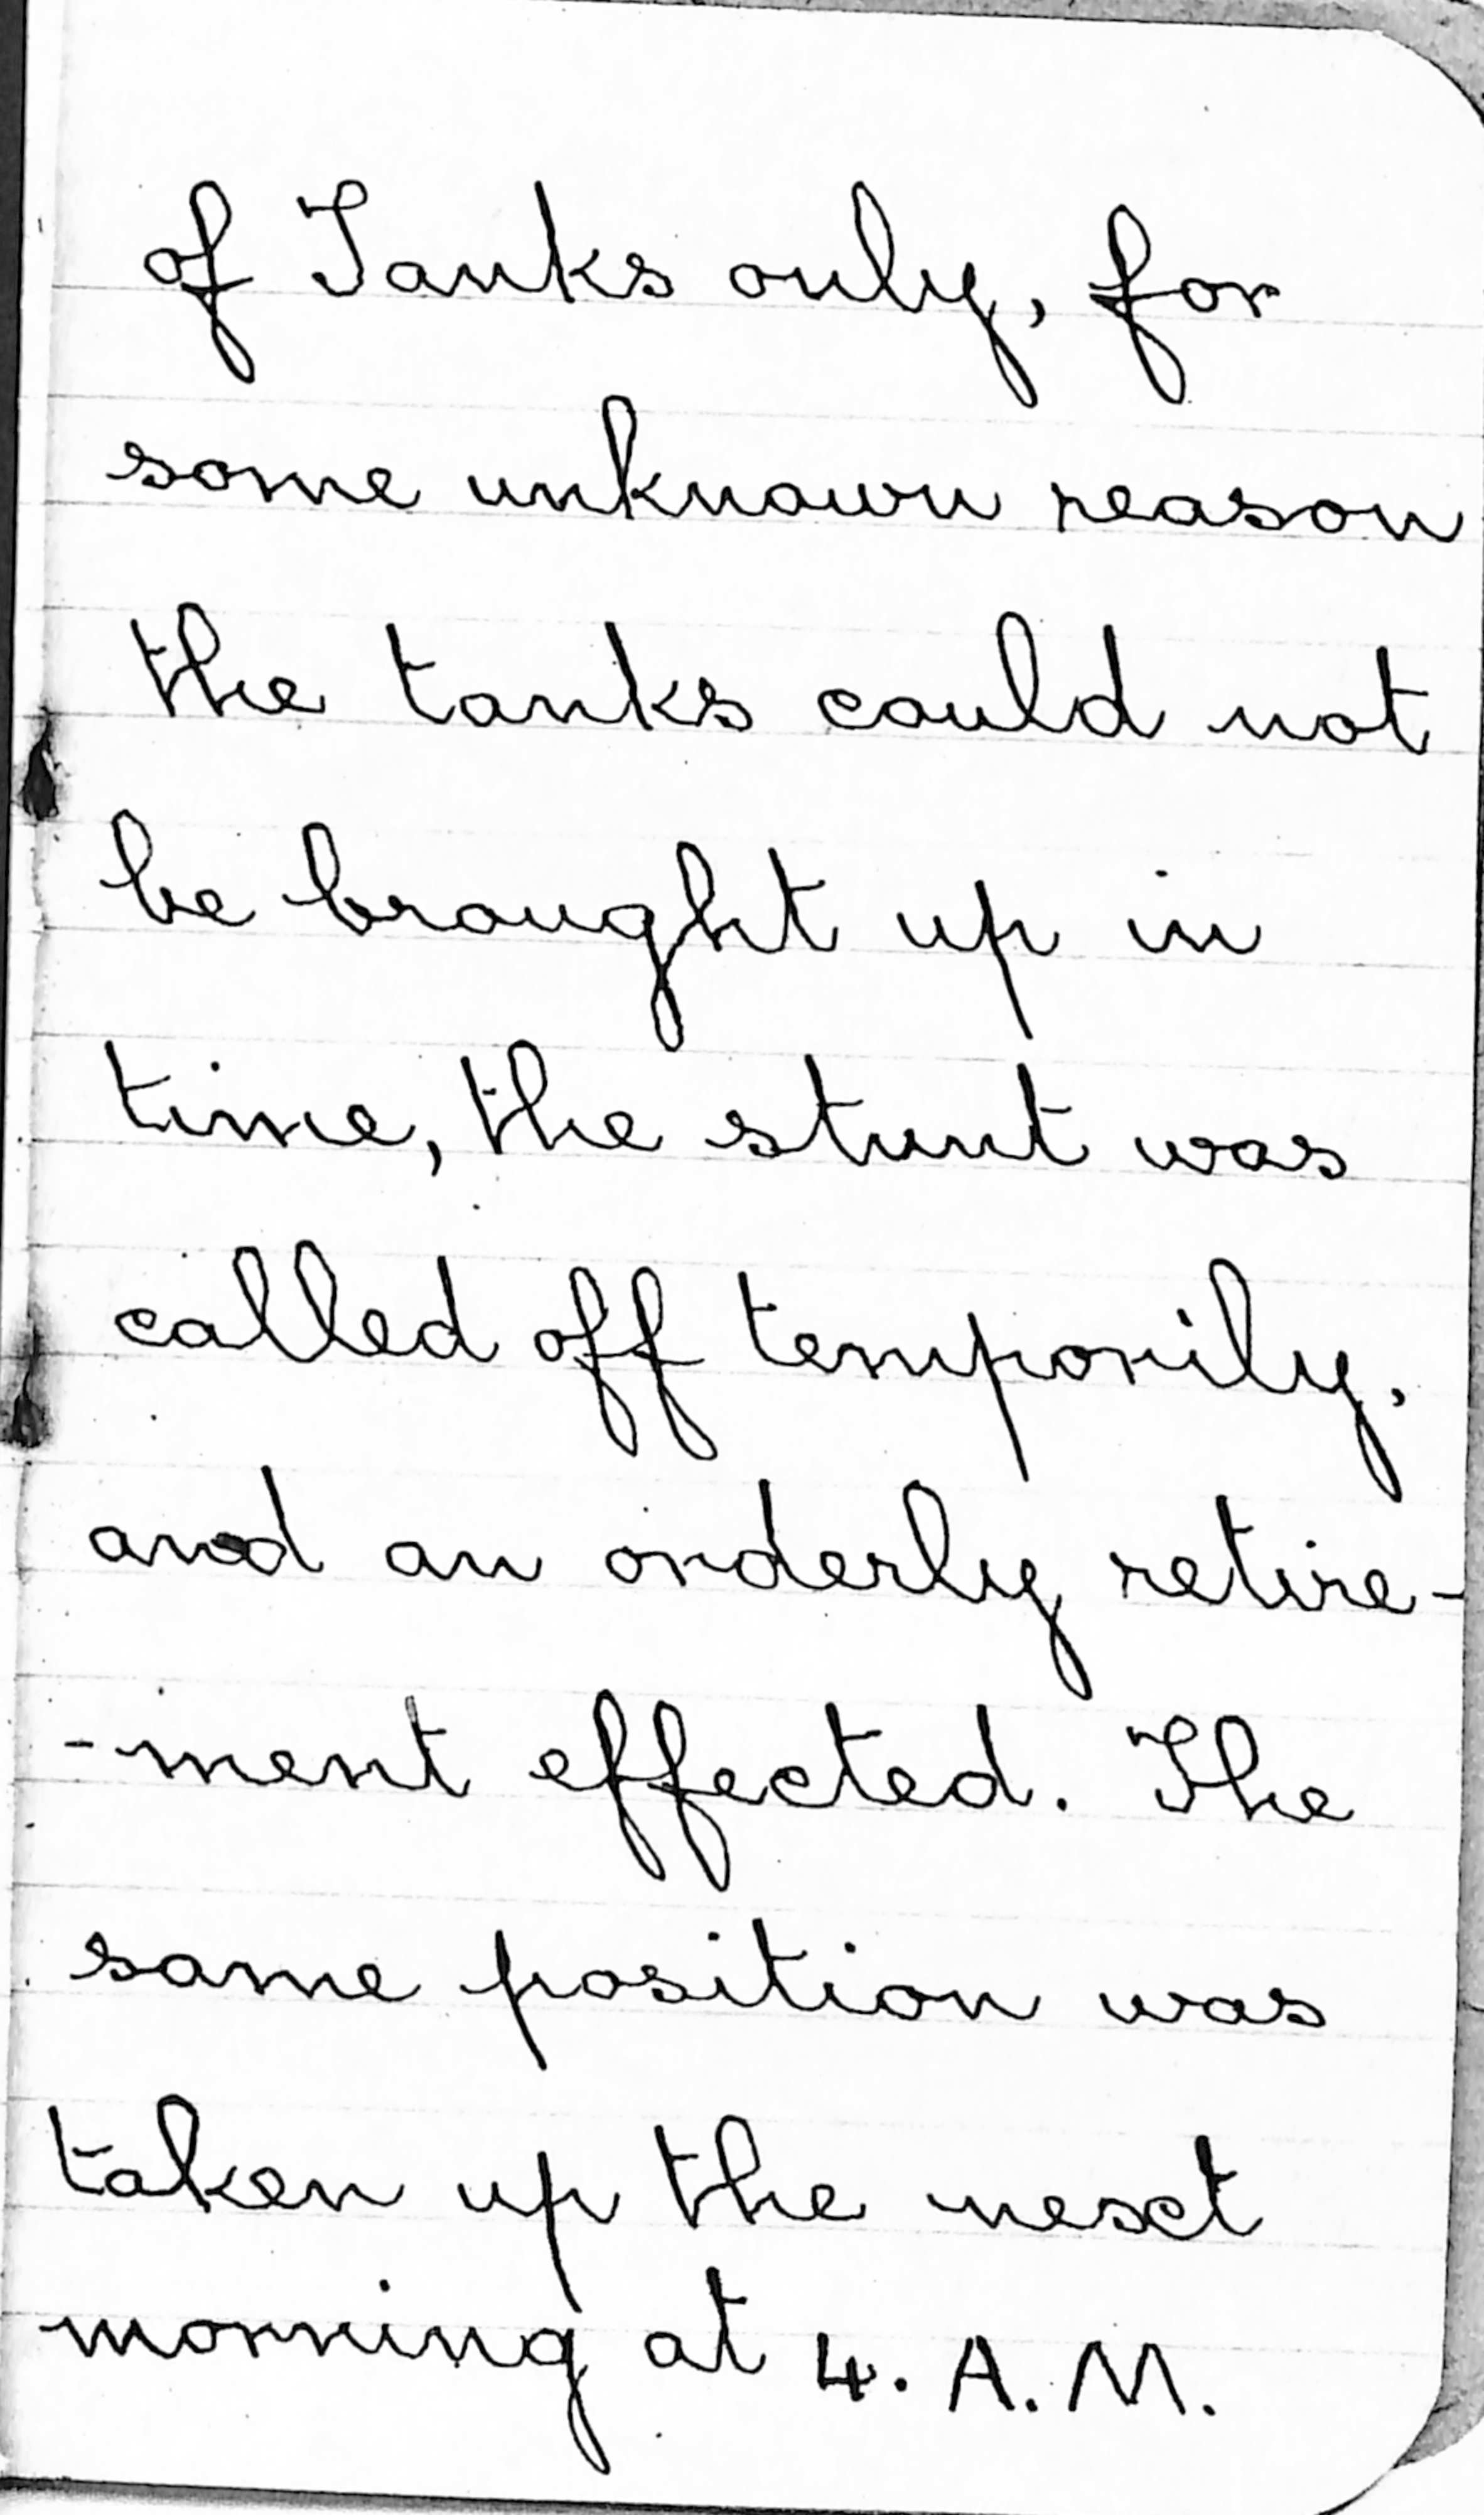 of Tanks only, for
some unknown reason
the tanks could not
be brought up in
time, the stunt was
called off temporily,
and an orderly retire-
-ment effected. The
same position was
taken up the next
morning at 4. A.M.